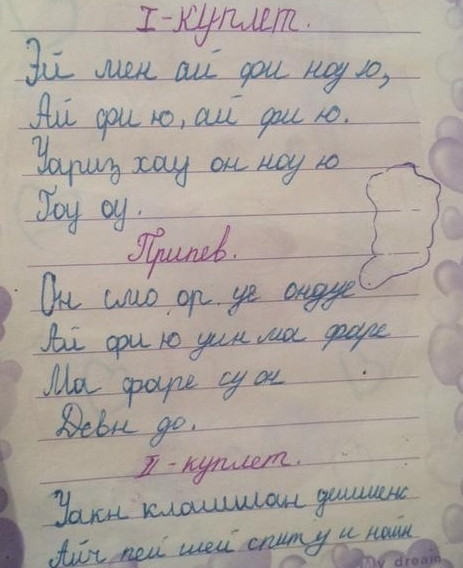 I-куплет.
Эй мен ай фи ноу ю,
Ай фи ю, ай фи ю.
Уариз хау он ноу ю
Гоу оу.
Припев.
Он смо ор уе ондуе
Ай фи ю уин ма фаре
Ма фаре су он
Девн до.
II-куплет.
Уакн клашиан
Айч пей шей спит у и найн
My dream